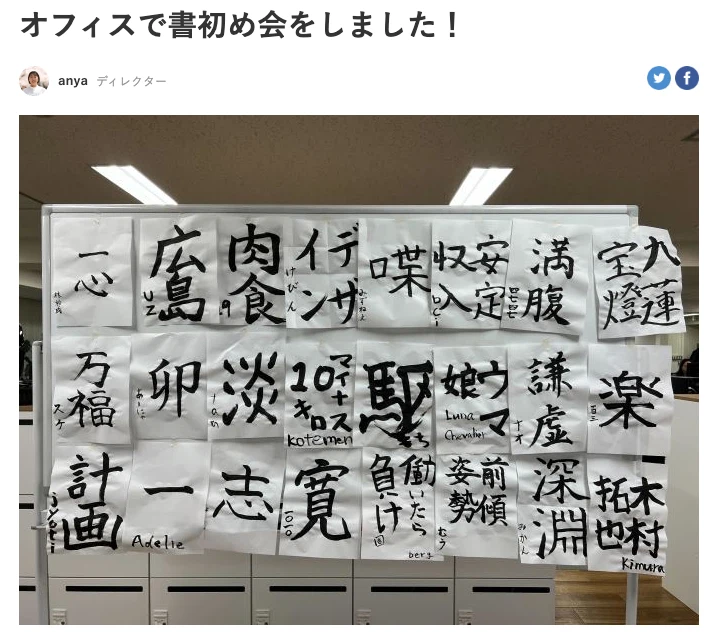 オフィスで書初め会をしました！
anya ディレクター
一心
広島
UZ
肉食
.9
デザイン
けびん
喋
安定収入
満腹
九蓮宝燈
万福
スケ
卯
淡
マイナス10キロ
kotemen
駆
もち
ウマ娘
Luna
Chevalier
謙虚
ナオ
楽
計画
一
Adelie
志
寛
働いたら負け
berg
前傾姿勢
むう
深淵
みかん
木村拓也
Kimura